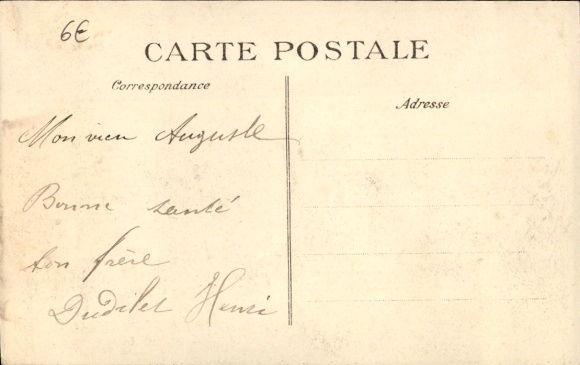 6€
CARTE POSTALE
Correspondance
Adresse
Mon vieu Auguste
Bonne santé
ton frère
Henri